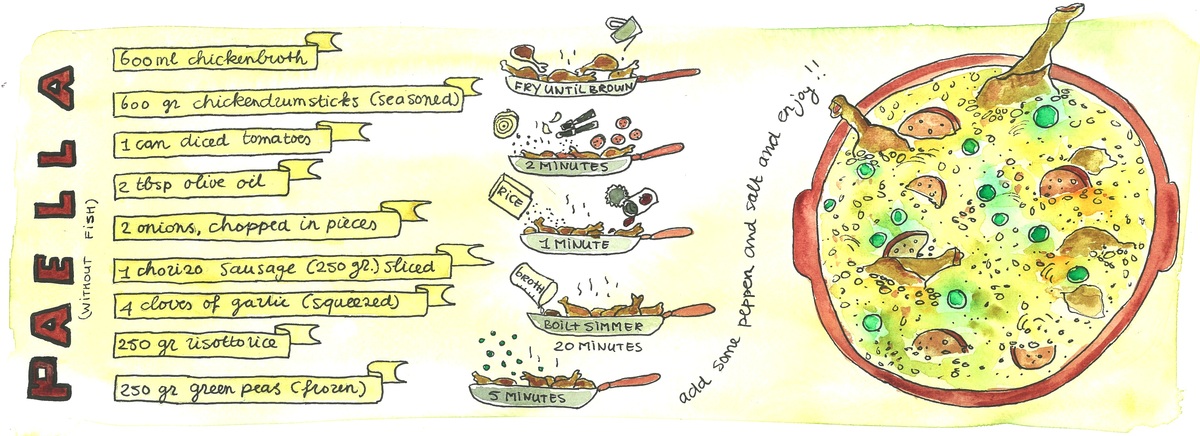 PAELLA
(WITHOUT FISH)
600 ml chickenbroth
600 gr chickendrumsticks (seasoned)
1 can diced tomatoes
2 tbsp olive oil
2 onions, chopped in pieces
1 chorizo sausage (250 gr.) sliced
4 cloves of garlic (squeezed)
250 gr risottorice
250 gr green peas (frozen)
FRY UNTIL BROWN
2 MINUTES
RICE
1 MINUTE
broth
BOIL+SIMMER
20 MINUTES
5 MINUTES
add some pepper and salt and enjoy!!